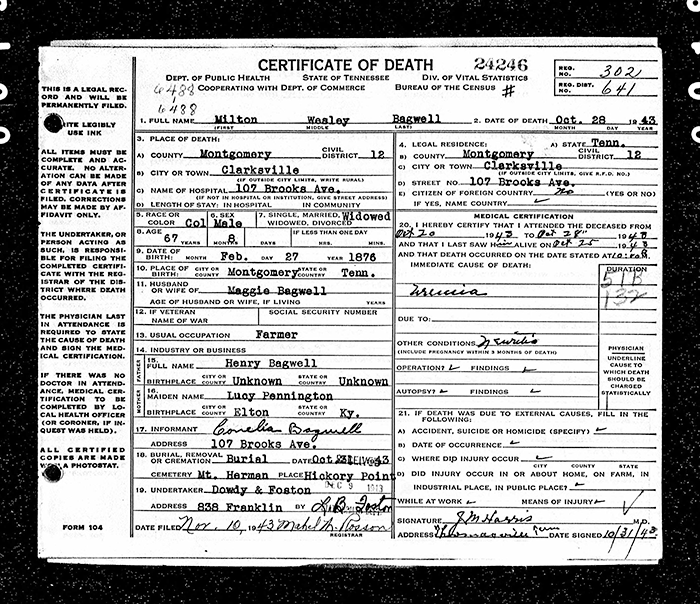 CERTIFICATE OF DEATH 24246
DEPT. OF PUBLIC HEALTH STATE OF TENNESSEE DIV. OF VITAL STATISTICS
COOPERATING WITH DEPT. OF COMMERCE BUREAU OF THE CENSUS #
REG. NO. 302
REG. DIST. 641
6488
6488
THIS IS A LEGAL REC
ORD AND WILL BE
PERMANENTLY FILED.
ITE LEGIBLY
USE INK
ALL ITEMS MUST BE
COMPLETE AND AC-
CURATE. NO ALTER-
ATION CAN BE MADE
OF ANY DATA AFTER
CERTIFICATE IS
FILED. CORRECTIONS
MAY BE MADE BY AF-
FIDAVIT ONLY.
THE UNDERTAKER, OR
PERSON ACTING AS
SUCH, IS RESPONSI-
BLE FOR FILING THE
COMPLETED CERTIFI-
CATE WITH THE REG-
ISTRAR OF THE DIS-
TRICT WHERE DEATH
OCCURRED.
THE PHYSICIAN LAST
IN ATTENDANCE IS
REQUIRED TO STATE
THE CAUSE OF DEATH
AND SIGN THE MEDI-
CAL CERTIFICATION.
IF THERE WAS NO
DOCTOR IN ATTEND-
ANCE, MEDICAL CER-
TIFICATION TO BE
COMPLETED BY LO-
CAL HEALTH OFFICER
(OR CORONER, IF IN-
QUEST WAS HELD).
ALL CERTIFIED
COPIES ARE MADE
A PHOTOSTAT.
FORM 104
1. FULL NAME Milton Wesley Bagwell 2. DATE OF DEATH Oct. 28 1943
(FIRST) MIDDLE LAST) MONTH DAY YEAR
3. PLACE OF DEATH:
A) COUNTY Montgomery CIVIL DISTRICT 12
B) CITY OR TOWN Clarksville
(IF OUTSIDE CITY LIMITS, WRITE RURAL)
C) NAME OF HOSPITAL 107 Brooks Ave.
(IF NOT IN HOSPITAL OR INSTITUTION, GIVE STREET ADDRESS)
D) LENGTH OF STAY: IN HOSPITAL IN COMMUNITY
4. LEGAL RESIDENCE: A) STATE Tenn.
B) COUNTY Montgomery CIVIL DISTRICT 12
C) CITY OR TOWN Clarksville
(IF OUTSIDE CITY LIMITS, GIVE R.F.D. NO.)
D) STREET NO. 107 Brooks Ave.
E) CITIZEN OF FOREIGN COUNTRY No (YES OR NO)
IF YES, NAME COUNTRY
5. RACE OR COLOR Col 6. SEX Male 7. SINGLE, MARRIED, WIDOWED, DIVORCED Widowed
8. AGE 67 YEARS 8 MONTHS DAYS IF LESS THAN ONE DAY HRS. MINS.
9. DATE OF BIRTH: Feb. 27 1876
MONTH DAY YEAR
10. PLACE OF BIRTH: CITY OR COUNTY Montgomery STATE OR COUNTRY Tenn.
11. HUSBAND OR WIFE OF Maggie Bagwell
AGE OF HUSBAND OR WIFE, IF LIVING YEARS
12. IF VETERAN NAME OF WAR SOCIAL SECURITY NUMBER
13. USUAL OCCUPATION Farmer
14. INDUSTRY OR BUSINESS
FATHER
15. FULL NAME Henry Bagwell
BIRTHPLACE CITY OR COUNTY Unknown STATE OR COUNTRY Unknown
MOTHER
16. MAIDEN NAME Lucy Pennington
BIRTHPLACE CITY OR COUNTY Elton STATE OR COUNTRY Ky.
17. INFORMANT Cornelia Bagwell
ADDRESS 107 Brooks Ave.
18. BURIAL, REMOVAL OR CREMATION Burial DATE Oct 31 1943
CEMETERY Mt. Herman PLACE Hickory Point
19. UNDERTAKER Dowdy & Foston DEC 9 1943
ADDRESS 838 Franklin BY L. B. Foston
DATE FILED Nov. 10, 1943 Mabel M. Rosson
REGISTRAR
MEDICAL CERTIFICATION
20. I HEREBY CERTIFY THAT I ATTENDED THE DECEASED FROM
Oct 20 1943 TO Oct 28" 1943
AND THAT I LAST SAW him ALIVE ON Oct 25 1943
AND THAT DEATH OCCURRED ON THE DATE STATED AT 10:00 M
IMMEDIATE CAUSE OF DEATH: DURATION
Uremia
51B
132
DUE TO:
OTHER CONDITIONS
(INCLUDE PREGNANCY WITHIN 3 MONTHS OF DEATH)
OPERATION? FINDINGS
AUTOPSY? FINDINGS
PHYSICIAN
UNDERLINE
CAUSE TO
WHICH DEATH
SHOULD BE
CHARGED
STATISTICALLY
21. IF DEATH WAS DUE TO EXTERNAL CAUSES, FILL IN THE
FOLLOWING:
A) ACCIDENT, SUICIDE OR HOMICIDE (SPECIFY)
B) DATE OF OCCURRENCE
C) WHERE DID INJURY OCCUR
CITY COUNTY STATE
D) DID INJURY OCCUR IN OR ABOUT HOME, ON FARM, IN
INDUSTRIAL PLACE, IN PUBLIC PLACE?
WHILE AT WORK MEANS OF INJURY
SIGNATURE J M Harris M.D.
ADDRESS Thomasville Tenn DATE SIGNED 10/31/43